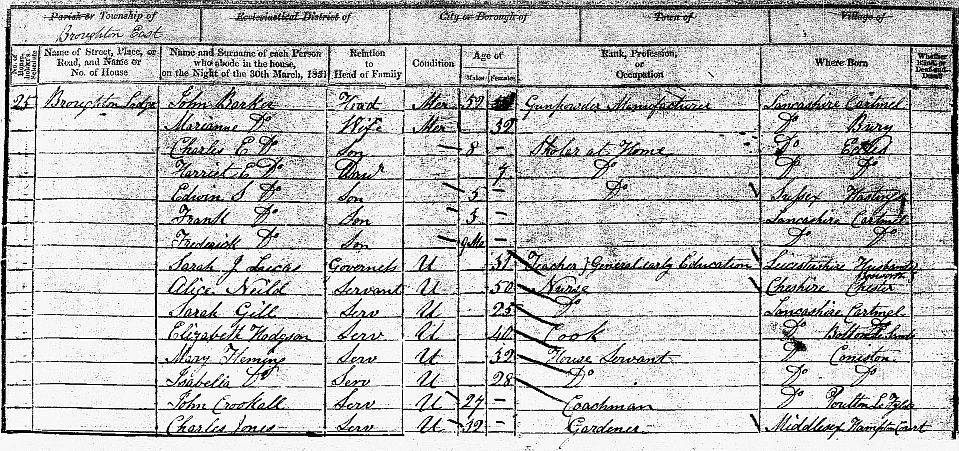 Parish or Township of Ecclesiastical District of City or Borough of Town of Village of
Broughton East
Name of Street, Place, or Road, and Name or No. of House Name and Surname of each Person who abode in the house, on the Night of the 30th March, 1851 Relation to Head of Family Condition Age of Males Females Rank, Profession, or Occupation Where Born
25 Broughton Lodge John Barker Head Mar 52 Gunpowder Manufacturer Lancashire Cartmel
Marianne Do Wife Mar 32 Do Bury
Charles E Do Son 8 - Scholar at Home Do Eccles
Harriet E Do Daur 7 Do Do Do
Edwin S Do Son 5 - Do Sussex Hastings
Frank Do Son 3 - Lancashire Cartmel
Frederick Do Son 9Mo - Do Do
Sarah J Lucas Governess U 31 Teacher } General early Education Leicestershire Husbands Bosworth
Alice Neild Servant U 50 Nurse Cheshire Chester
Sarah Gill Serv U 25 Do Lancashire Cartmel
Elizabeth Hodgson Serv U 40 Cook Do Bolton
Mary Fleming Serv U 32 House Servant Do Coniston
Isabella Do Serv U 28 Do Do Do
John Crookall Serv U 24 - Coachman Do Poulton Le Fylde
Charles Jones Serv U 32 - Gardener Middlesex Hampton Court